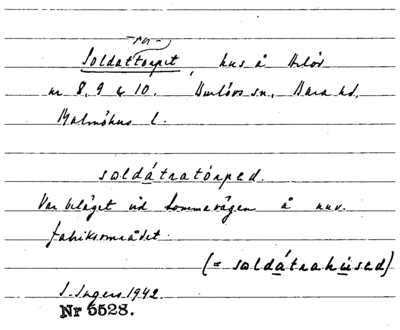 Soldattorpet, hus å Arlöv
nr 8, 9 & 10. Burlövs sn, Bara hd,
Malmöhus l.
soldátratórped.
Var beläget vid Lommavägen å nuv.
fabriksområdet.
(= soldátrahúsed)
I. Ingers 1942.
Nr 5528.